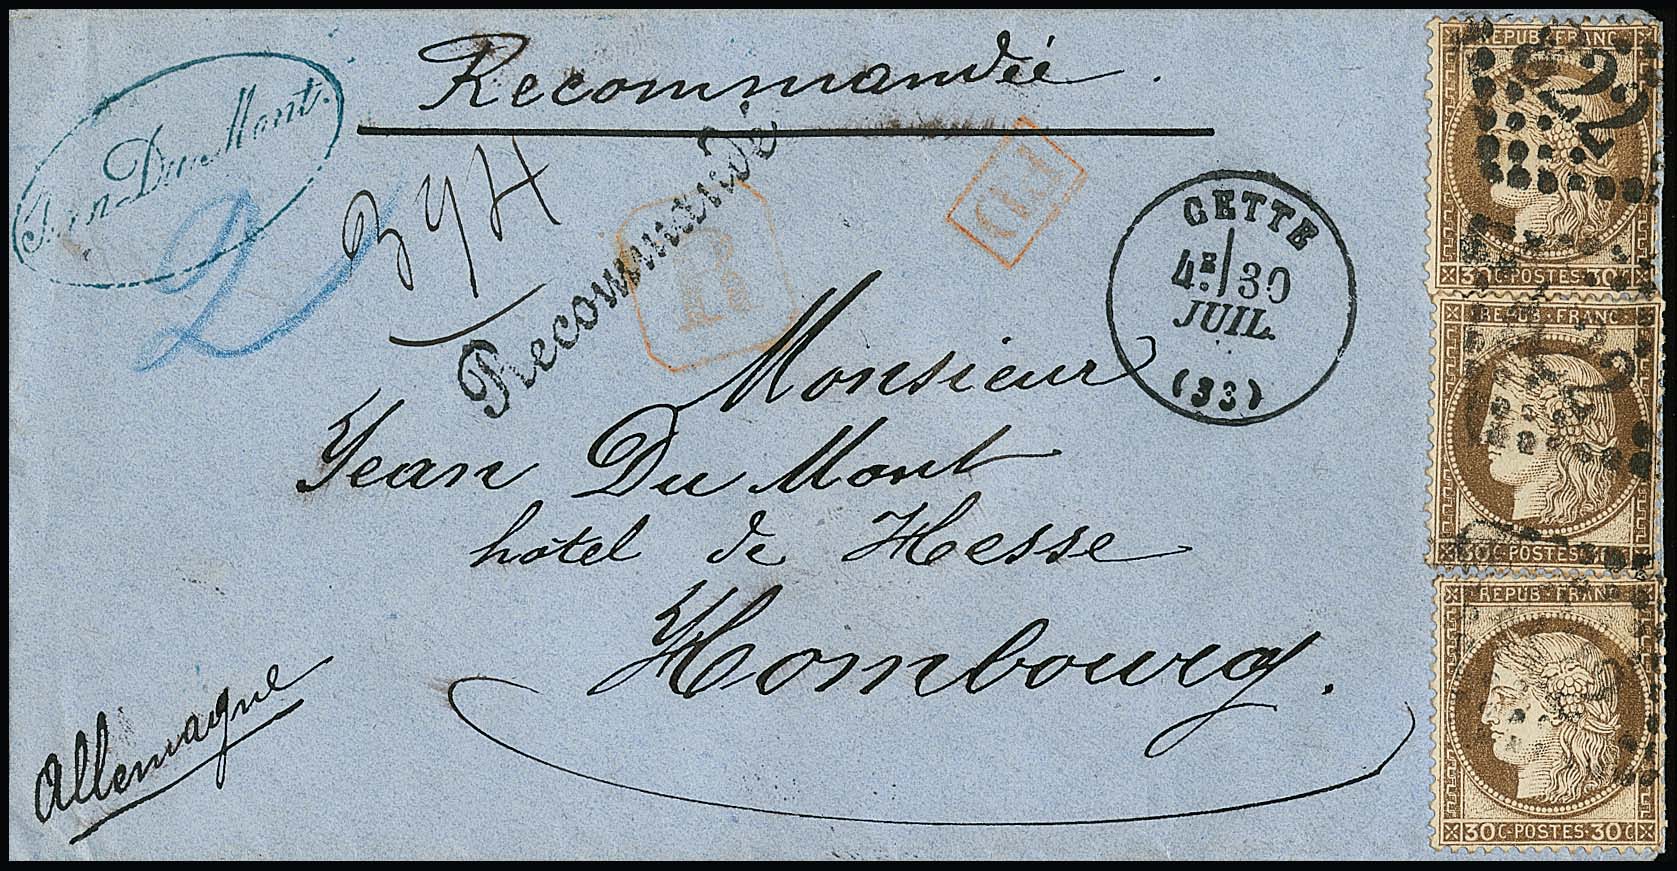 Recommandée.
Jean DuMont.
2
Recommandé
R
CETTE
4E/30
JUIL.
(33)
Monsieur
Jean DuMont
hôtel de Hesse
Hombourg.
Allemagne
REPUB·FRANC
30C·POSTES·30C
REPUB·FRANC
30C·POSTES·30C
REPUB·FRANC
30C·POSTES·30C